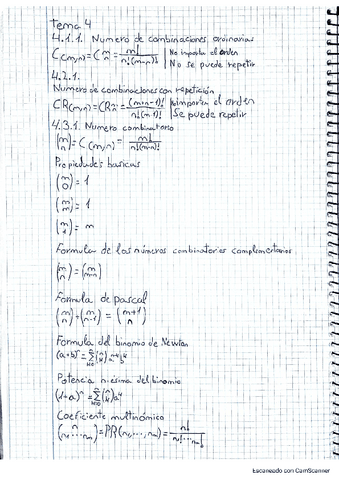 Tema 4
4.1.1. Numero de combinaciones ordinarias
C(m,n) = C m n = m! / n!(m-n)! | No importa el orden
| No se puede repetir
4.2.1.
Numero de combinaciones con repetición
CR(m,n) = CR m n = (m+n-1)! / n!(m-1)! importan el orden
Se puede repetir
4.3.1. Numero combinatorio
(m n) = C(m,n) = m! / n!(m-n)!
Propiedades basicas
(m 0) = 1
(m m) = 1
(m 1) = m
Formula de los números combinatorios complementarios
(m n) = (m m-n)
Formula de pascal
(m n) + (m n-1) = (m+1 n)
Formula del binomio de Newton
(a+b)^n = Σ (n k) a^n-k b^k
Potencia niesima del binomio
(1+a)^n = Σ (n k) a^k
Coeficiente multinómico
(n n1, ... nm) = PR(n1, ..., nm) = n! / n1! ... nm!
Escaneado con CamScanner